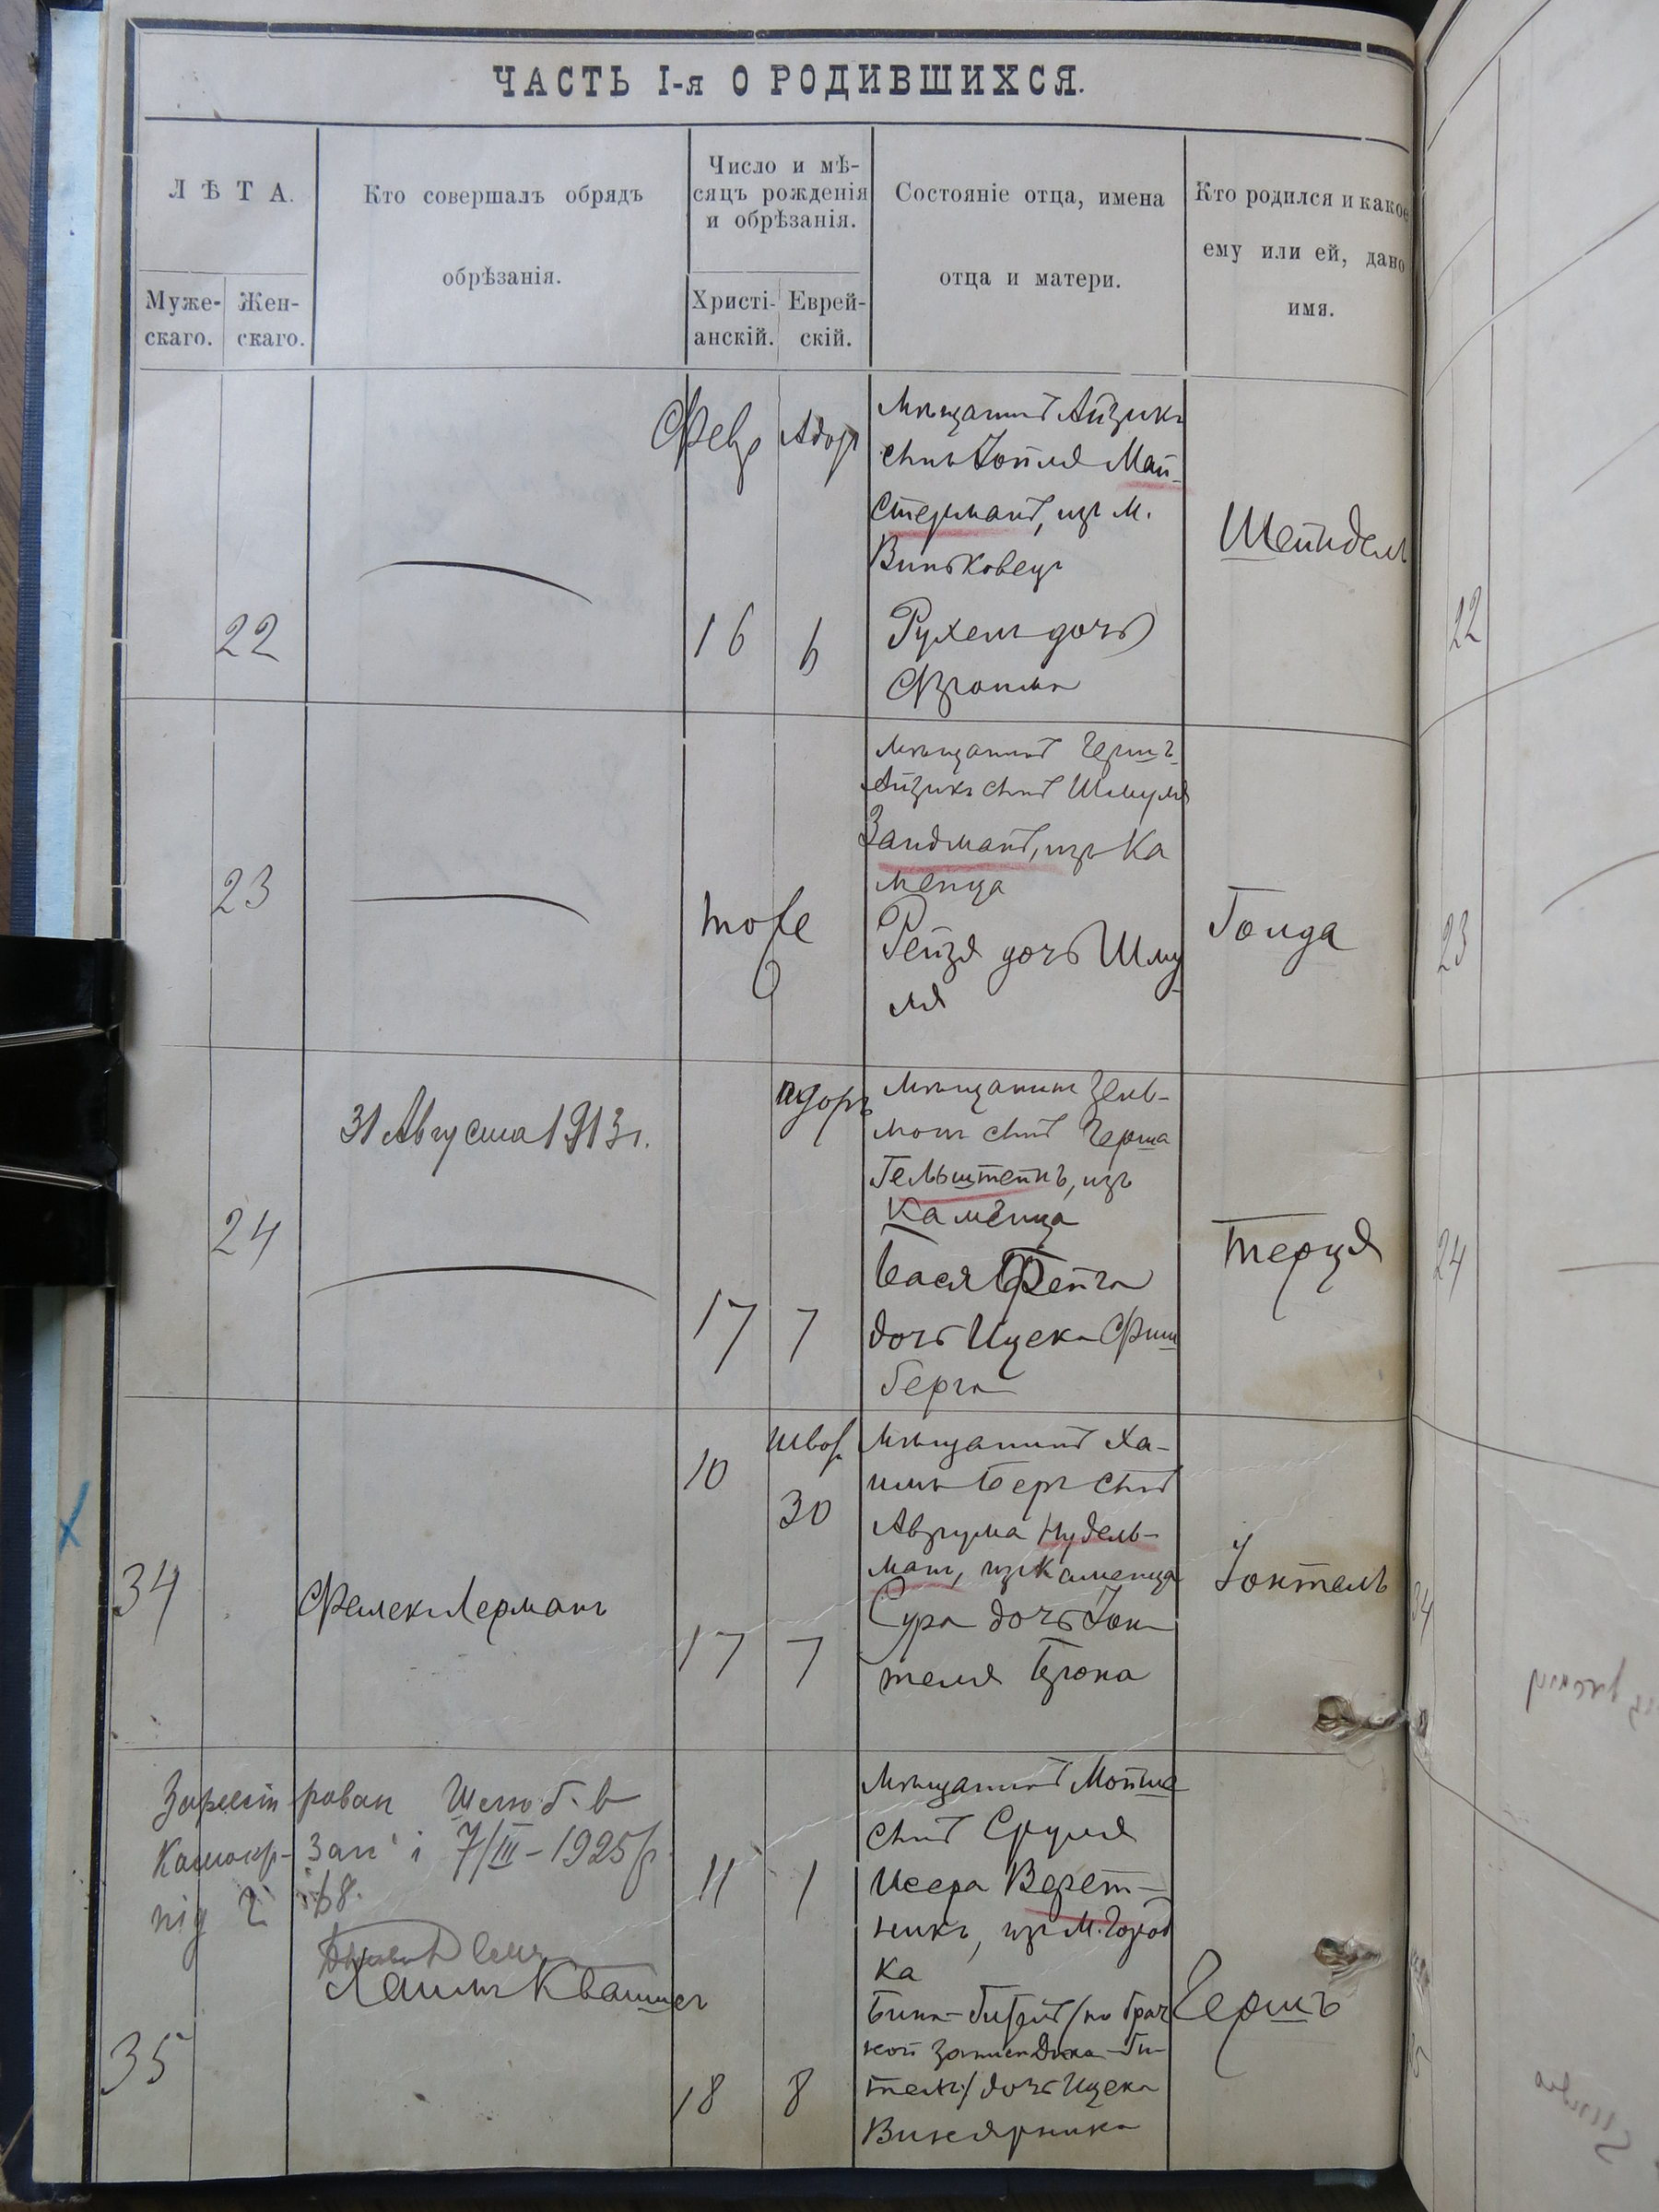 ЧАСТЬ I-я О РОДИВШИХСЯ.
ЛѢТА.
Муже-
скаго.
Жен-
скаго.
Кто совершалъ обрядъ
обрѣзанія.
Число и мѣ-
сяцъ рожденія
и обрѣзанія.
Христі-
анскій.
Еврей-
скій.
Состояніе отца, имена
отца и матери.
Кто родился и какое
ему или ей, дано
имя.
22
Февр
16
Адар
6
Мѣщанинъ Айзикъ
сынъ Іойля Май-
стерманъ, изъ м.
Виньковецъ
Рухель дочь
Фроима
Шейндель
22
23
тоже
Мѣщанинъ Гершъ-
Айзикъ сынъ Шмуля
Зандманъ, изъ Ка
менца
Рейзя дочь Шму-
ля
Голда
23
31 Августа 1913 г.
24
17
адаръ
7
Мѣщанинъ Зель-
манъ сынъ Герша
Гельштейнъ, изъ
Каменца
Бася Фейга
дочь Ицека Фиш
берга
Терця
24
34
Фалекъ Лерманъ
10
17
шват
30
7
Мѣщанинъ Ха-
имъ Беръ сынъ
Аврума Нудель-
манъ, изъ Каменца
Сура дочь Іок
теля Брона
Іоктель
34
Зареєстрован Шлюб в
Камокр- Заг'і 7/III-1925 р.
під Ч 168.
35
Хаимъ Квашер
11
18
1
8
Мѣщанинъ Мойше
сынъ Сруля
Исера Верет-
никъ, изъ М. Город
ка
Бина-Гитель /по брач
ной записи Дина-Ги-
тель:/ дочь Ицека
Винярника
Гершъ